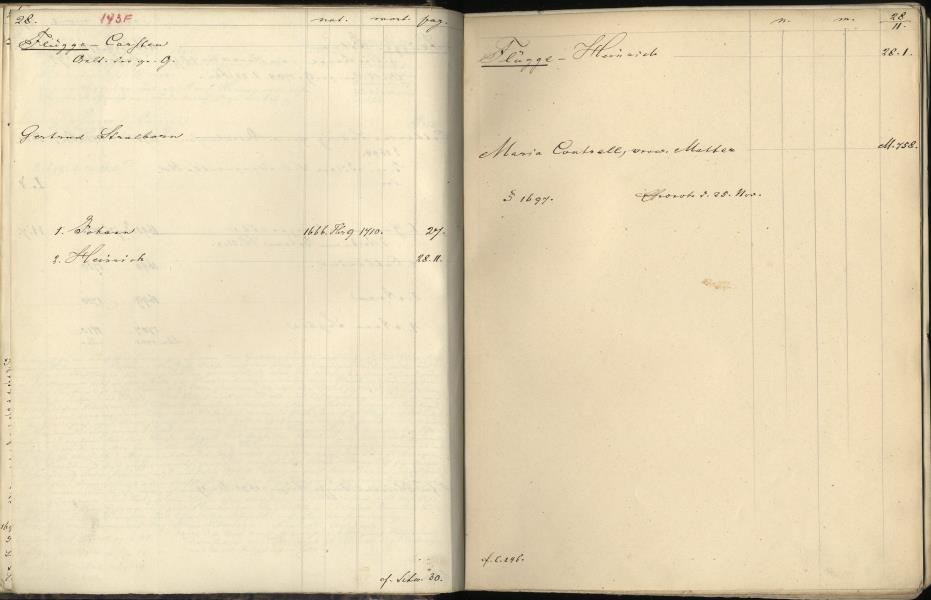 28. 143F nat. mort. pag.
Flügge - Carsten
Gertrud Stralborn
1. Johann 1666. 1710. 27.
2. Heinrich 28.II.
cf. Schw. 30.
n. m. 28/II.
Flügge - Heinrich 28.1.
Maria Contrell, verw. Melter M.758.
§ 1697. d. 25. Nov.
cf. C. 246.